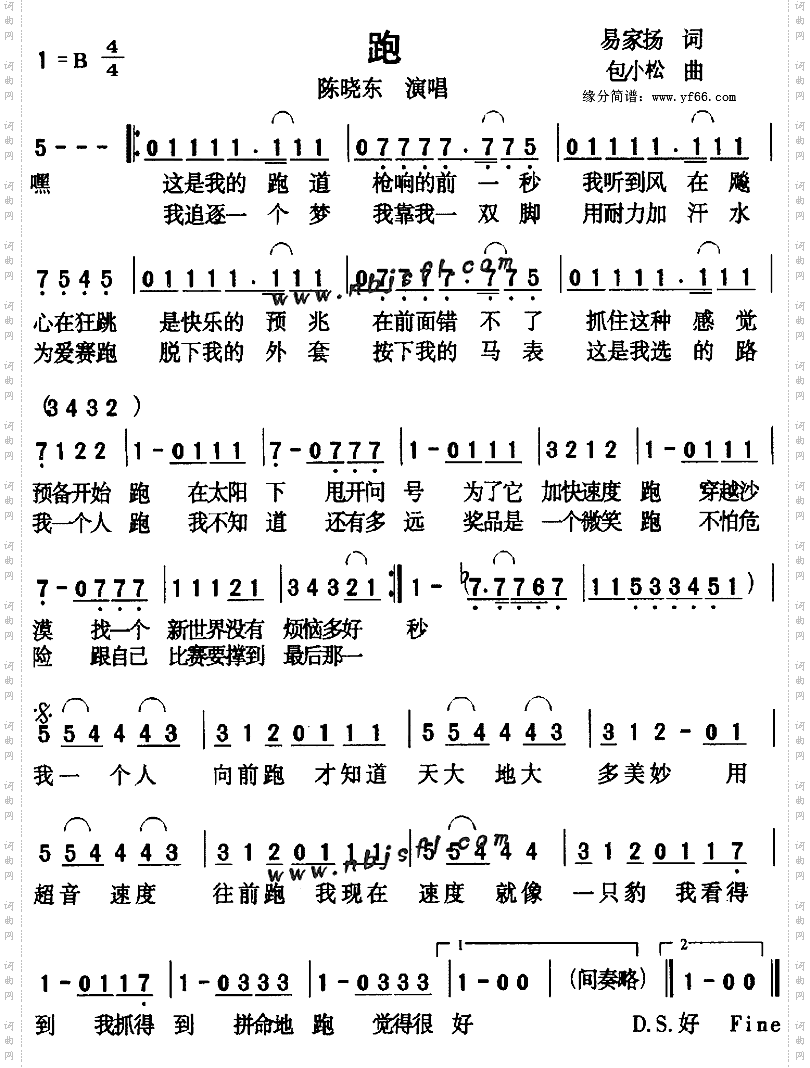 跑
1=B 4/4
易家扬 词
包小松 曲
陈晓东 演唱
缘分简谱：www.yf66.com
5 - - - 0 1 1 1 1 . 1 1 1 | 0 7 7 7 7 . 7 7 5 | 0 1 1 1 1 . 1 1 1 |
嘿 这是我的 跑 道 枪响的前 一 秒 我听到风 在 飚
我追逐一 个 梦 我靠我一 双 脚 用耐力加 汗 水
7 5 4 5 | 0 1 1 1 1 . 1 1 1 | 0 7 7 7 7 . 7 7 5 | 0 1 1 1 1 . 1 1 1 |
www.nbjsfl.com
心在狂跳 是快乐的 预 兆 在前面错 不 了 抓住这种 感 觉
为爱赛跑 脱下我的 外 套 按下我的 马 表 这是我选 的 路
(3 4 3 2)
7 1 2 2 | 1 - 0 1 1 1 | 7 - 0 7 7 7 | 1 - 0 1 1 1 | 3 2 1 2 | 1 - 0 1 1 1 |
预备开始 跑 在太阳 下 甩开问 号 为了它 加快速度 跑 穿越沙
我一个人 跑 我不知 道 还有多 远 奖品是 一个微笑 跑 不怕危
7 - 0 7 7 7 | 1 1 1 2 1 | 3 4 3 2 1 :|| 1 - (b7 . 7 7 6 7 | 1 1 5 3 3 4 5 1 )|
漠 找一个 新世界没有 烦恼多好 秒
险 跟自己 比赛要撑到 最后那一
5 5 4 4 4 3 | 3 1 2 0 1 1 1 | 5 5 4 4 4 3 | 3 1 2 - 0 1 |
我一 个人 向前跑 才知道 天大 地大 多美妙 用
5 5 4 4 4 3 | 3 1 2 0 1 1 1 | 5 5 4 4 4 | 3 1 2 0 1 1 7 |
www.nbjsfl.com
超音 速度 往前跑 我现在 速度 就像 一只豹 我看得
1. 2.
1 - 0 1 1 7 | 1 - 0 3 3 3 | 1 - 0 3 3 3 | 1 - 0 0 | (间奏略) || 1 - 0 0 ||
到 我抓得 到 拼命地 跑 觉得很 好 D.S.好 Fine
词曲网